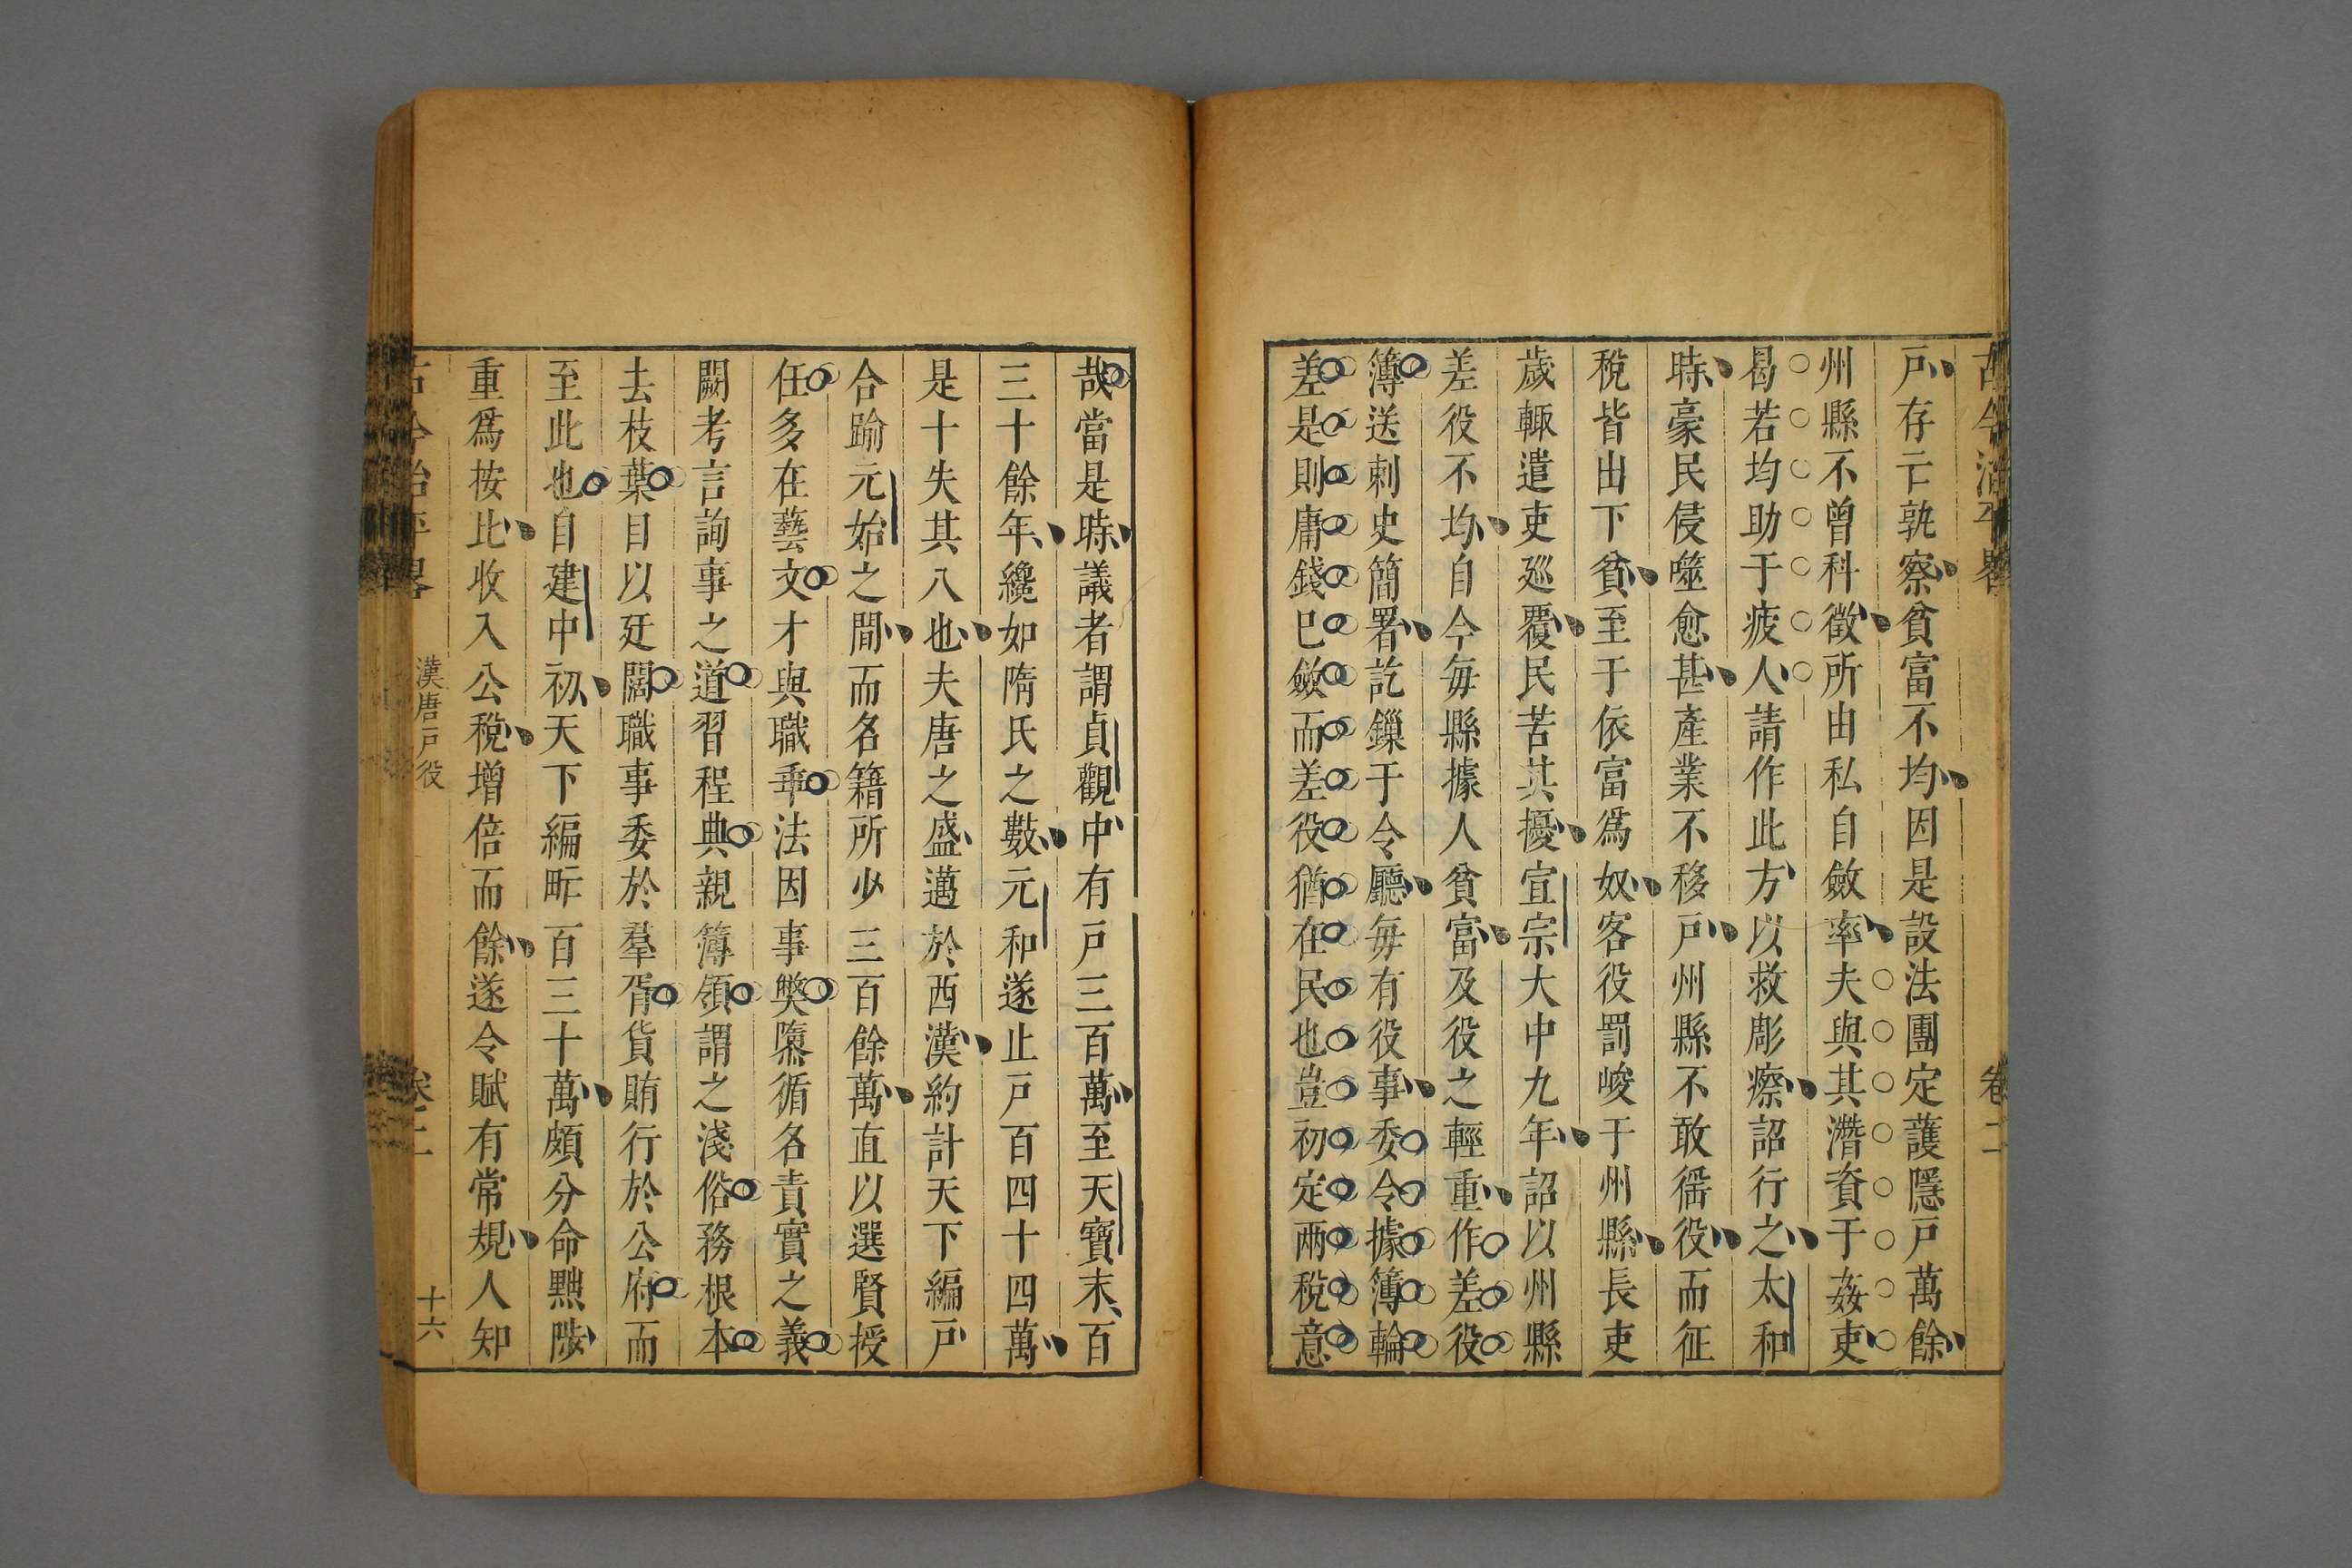 古今治平畧 卷二
戶存亡孰察貧富不均因是設法團定護隱戶萬餘
州縣不曾科徵所由私自斂率夫與其潛資于姦吏
曷若均助于疲人請作此方以救彫瘵詔行之太和
時豪民侵噬愈甚產業不移戶州縣不敢徭役而征
稅皆出下貧至于依富爲奴客役罰峻于州縣長吏
歲輒遣吏廵覆民苦其擾宣宗大中九年詔以州縣
差役不均自今每縣據人貧富及役之輕重作差役
簿送刺史簡署訖鏁于令廳每有役事委令據簿輪
差是則庸錢巳斂而差役猶在民也豈初定兩稅意
哉當是時議者謂貞觀中有戶三百萬至天寶末百
三十餘年纔如隋氏之數元和遂止戶百四十四萬
是十失其八也夫唐之盛邁於西漢約計天下編戶
合踰元始之間而名籍所少三百餘萬直以選賢授
任多在藝文才與職乖法因事獘隳循名責實之義
闕考言詢事之道習程典親簿領謂之淺俗務根本
去枝葉目以迂闊職事委於羣胥貨賄行於公府而
至此也自建中初天下編甿百三十萬頗分命黜陟
重爲按比收入公稅增倍而餘遂令賦有常規人知
古今治平畧 漢唐戶役 卷二 十六